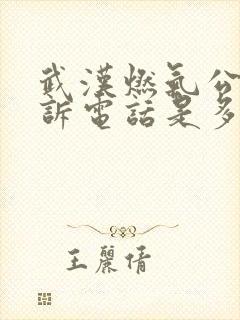 武漢燃氣公
訴電話是多
王麗倩